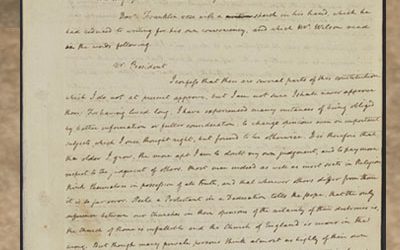 Doctr. Franklin rose with a speech in his hand, which he
had reduced to writing for his own conveniency, and which Mr. Wilson read
in the words following.
Mr. President
I confess that there are several parts of this constitution
which I do not at present approve, but I am not sure I shall never approve
them: For having lived long, I have experienced many instances of being obliged
by better information or fuller consideration, to change opinions even on important
subjects, which I once thought right, but found to be otherwise. It is therefore that
the older I grow, the more apt I am to doubt my own judgment, and to pay more
respect to the judgment of others. Most men indeed as well as most sects in Religion
think themselves in possession of all truth, and that wherever others differ from them
it is so far error. Steele a Protestant in a Dedication tells the Pope, that the only
difference between our Churches in their opinions of the certainty of their doctrines is,
the Church of Rome is infallible and the Church of England is never in the
wrong. But though many private persons think almost as highly of their own